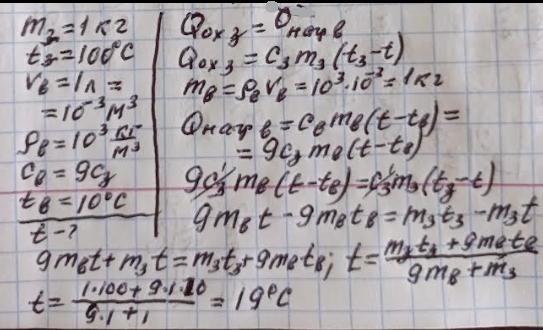 m₃ = 1 кг
t₃ = 100°C
Vв = 1 л =
= 10⁻³ м³
ρв = 10³ кг/м³
cв = 9c₃
tв = 10°C
t - ?
Qох з = Qнаг в
Qох з = c₃ m₃ (t₃ - t)
mв = ρв Vв = 10³ · 10⁻³ = 1 кг
Qнаг в = cв mв (t - tв) =
= 9c₃ mв (t - tв)
9c₃ mв (t - tв) = c₃ m₃ (t₃ - t)
9mв t - 9mв tв = m₃ t₃ - m₃ t
9mв t + m₃ t = m₃ t₃ + 9mв tв; t = (m₃ t₃ + 9mв tв)/(9mв + m₃)
t = (1·100 + 9·1·10)/(9·1 + 1) = 19°C